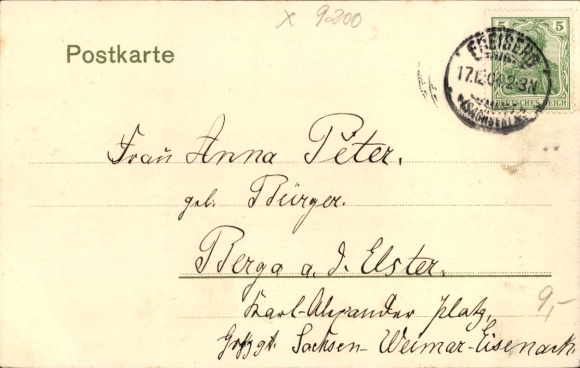 x 9200
Postkarte
5 5
FREIBERG
17.12.04.2-3N
(SACHSEN)
DEUTSCHES REICH
Frau Anna Peter,
geb. Bürger.
Berga a. d. Elster.
Karl-Alexander Platz,
Großhgt. Sachsen-Weimar-Eisenach
9,-